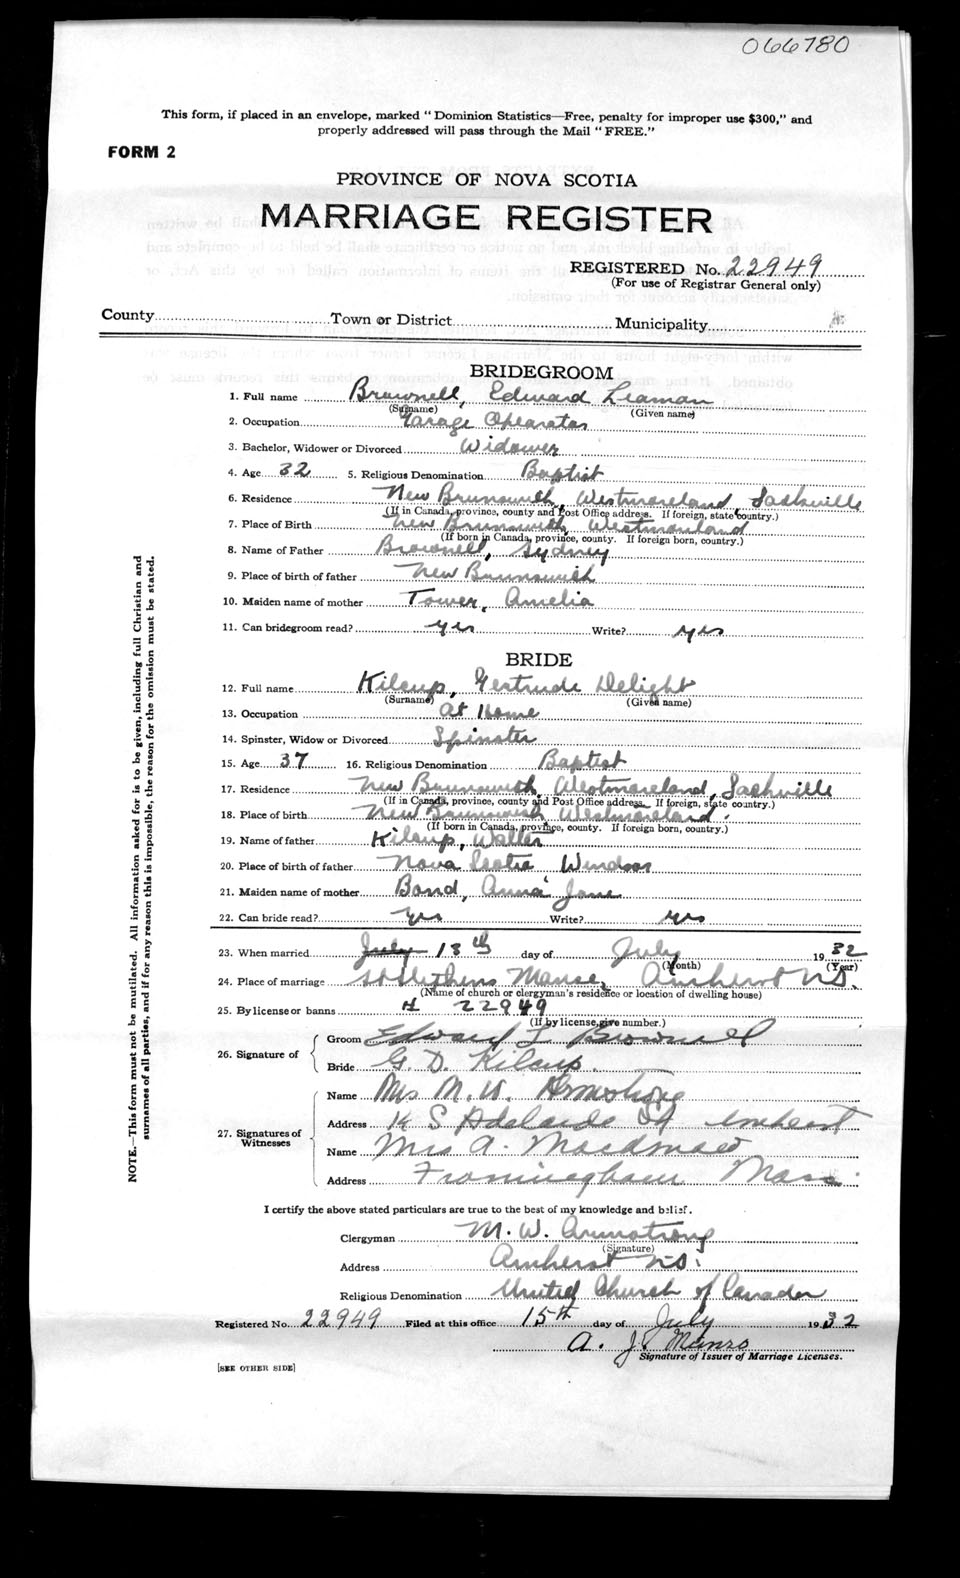 066780
This form, if placed in an envelope, marked "Dominion Statistics—Free, penalty for improper use $300," and
properly addressed will pass through the Mail "FREE."
FORM 2
PROVINCE OF NOVA SCOTIA
MARRIAGE REGISTER
REGISTERED No. 22949
(For use of Registrar General only)
County Town or District Municipality
BRIDEGROOM
1. Full name Brownell, Edward Leaman
(Surname) (Given name)
2. Occupation Garage Operator
3. Bachelor, Widower or Divorced Widower
4. Age 32 5. Religious Denomination Baptist
6. Residence New Brunswick, Westmoreland, Sackville
(If in Canada, province, county and Post Office address. If foreign, state country.)
7. Place of Birth New Brunswick, Westmoreland
(If born in Canada, province, county. If foreign born, country.)
8. Name of Father Brownell, Sydney
9. Place of birth of father New Brunswick
10. Maiden name of mother Tower, Amelia
11. Can bridegroom read? yes Write? yes
BRIDE
12. Full name Kilcup, Gertrude Delight
(Surname) (Given name)
13. Occupation At Home
14. Spinster, Widow or Divorced Spinster
15. Age 37 16. Religious Denomination Baptist
17. Residence New Brunswick, Westmoreland, Sackville
(If in Canada, province, county and Post Office address. If foreign, state country.)
18. Place of birth New Brunswick Westmoreland.
(If born in Canada, province, county. If foreign born, country.)
19. Name of father Kilcup, Walter
20. Place of birth of father Nova Scotia Windsor
21. Maiden name of mother Bond, Anna Jane
22. Can bride read? yes Write? yes
23. When married July 13th day of July 1932
(Month) (Year)
24. Place of marriage St Stephens Manse, Amherst N.S.
(Name of church or clergyman's residence or location of dwelling house)
25. By license or banns 22949
(If by license, give number.)
26. Signature of Groom Edward L Brownell
Bride G. D. Kilcup.
27. Signatures of Witnesses
Name Mrs M. W. Armstrong
Address S Adelaide St Amherst
Name Mrs A.
Address Framingham Mass.
I certify the above stated particulars are true to the best of my knowledge and belief.
Clergyman M. W. Armstrong
(Signature)
Address Amherst N.S.
Religious Denomination United Church of Canada
Registered No. 22949 Filed at this office 15th day of July 1932
A. J. Munro
Signature of Issuer of Marriage Licenses.
[SEE OTHER SIDE]
NOTE.—This form must not be mutilated. All information asked for is to be given, including full Christian and
surnames of all parties, and if for any reason this is impossible, the reason for the omission must be stated.